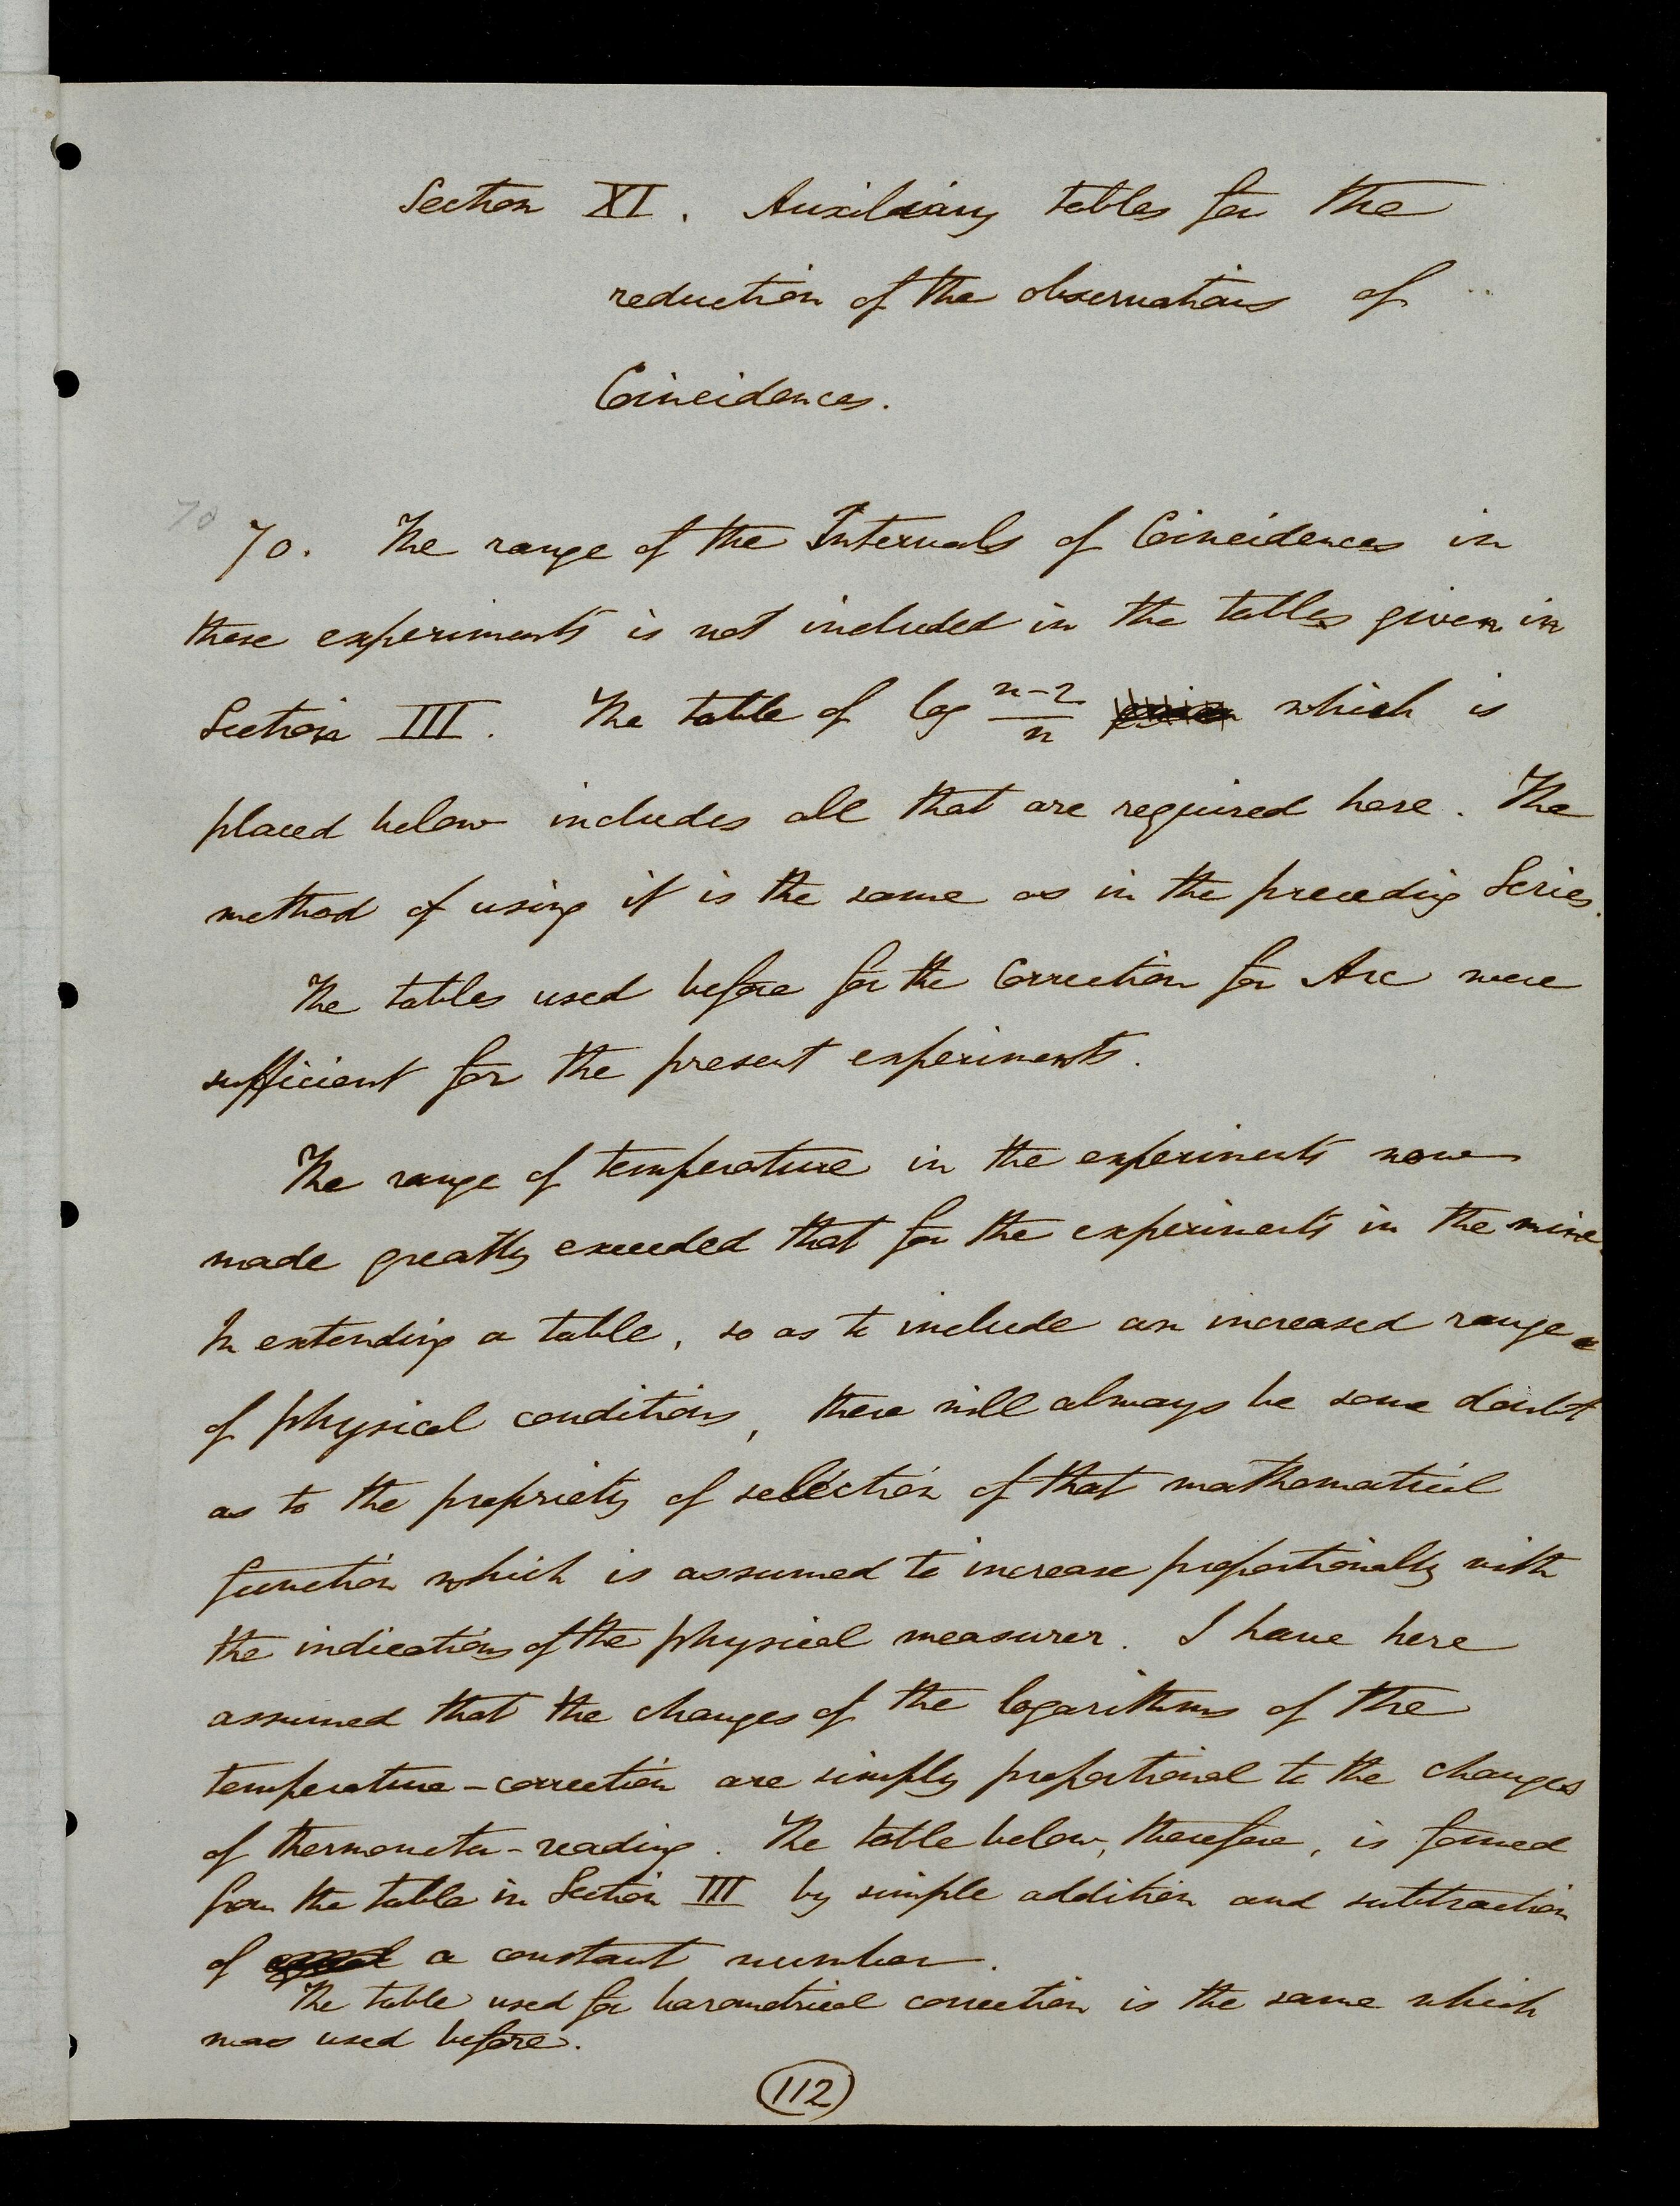 Section XI. Auxiliary tables for the
reduction of the observations of
Coincidences.
70
70. The range of the Intervals of Coincidences in
these experiments is not included in the tables given in
Section III. The table of log n-2/n which is
placed below includes all that are required here. The
method of using it is the same as in the preceding Series.
The tables used before for the Correction for Arc were
sufficient for the present experiments.
The range of temperature in the experiments now
made greatly exceeded that for the experiments in the mine.
In extending a table, so as to include an increased range
of physical conditions, there will always be some doubt
as to the propriety of selection of that mathematical
function which is assumed to increase proportionally with
the indications of the physical measurer. I have here
assumed that the changes of the logarithms of the
temperature-correction are simply proportional to the changes
of thermometer-reading. The table below, therefore, is formed
from the table in Section III by simple addition and subtraction
of a constant number.
The table used for barometrical correction is the same which
was used before.
112